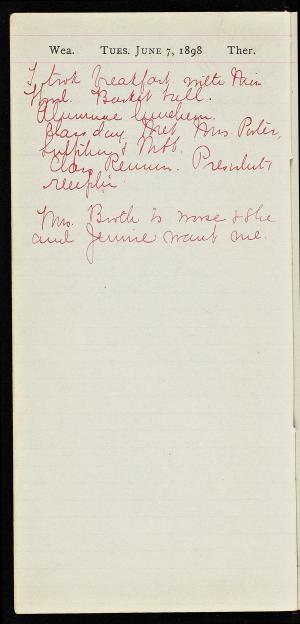 Wea. TUES. JUNE 7, 1898 Ther.
I took breakfast with Miss
Basket ball.
Alumnae luncheon.
Class day. Met Mrs. Porter,

Class Reunion. President's
reception
Mrs. Booth is worse & she
and Jennie want me.